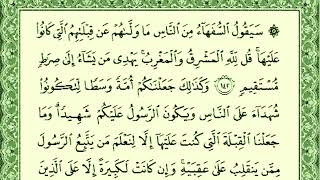 ۞ سَيَقُولُ ٱلسُّفَهَآءُ مِنَ ٱلنَّاسِ مَا وَلَّىٰهُمْ عَن قِبْلَتِهِمُ ٱلَّتِى كَانُوا۟
عَلَيْهَا ۚ قُل لِّلَّهِ ٱلْمَشْرِقُ وَٱلْمَغْرِبُ ۚ يَهْدِى مَن يَشَآءُ إِلَىٰ صِرَٰطٍ
مُّسْتَقِيمٍ ١٤٢ وَكَذَٰلِكَ جَعَلْنَٰكُمْ أُمَّةً وَسَطًا لِّتَكُونُوا۟
شُهَدَآءَ عَلَى ٱلنَّاسِ وَيَكُونَ ٱلرَّسُولُ عَلَيْكُمْ شَهِيدًا ۗ وَمَا
جَعَلْنَا ٱلْقِبْلَةَ ٱلَّتِى كُنتَ عَلَيْهَآ إِلَّا لِنَعْلَمَ مَن يَتَّبِعُ ٱلرَّسُولَ
مِمَّن يَنقَلِبُ عَلَىٰ عَقِبَيْهِ ۚ وَإِن كَانَتْ لَكَبِيرَةً إِلَّا عَلَى ٱلَّذِينَ